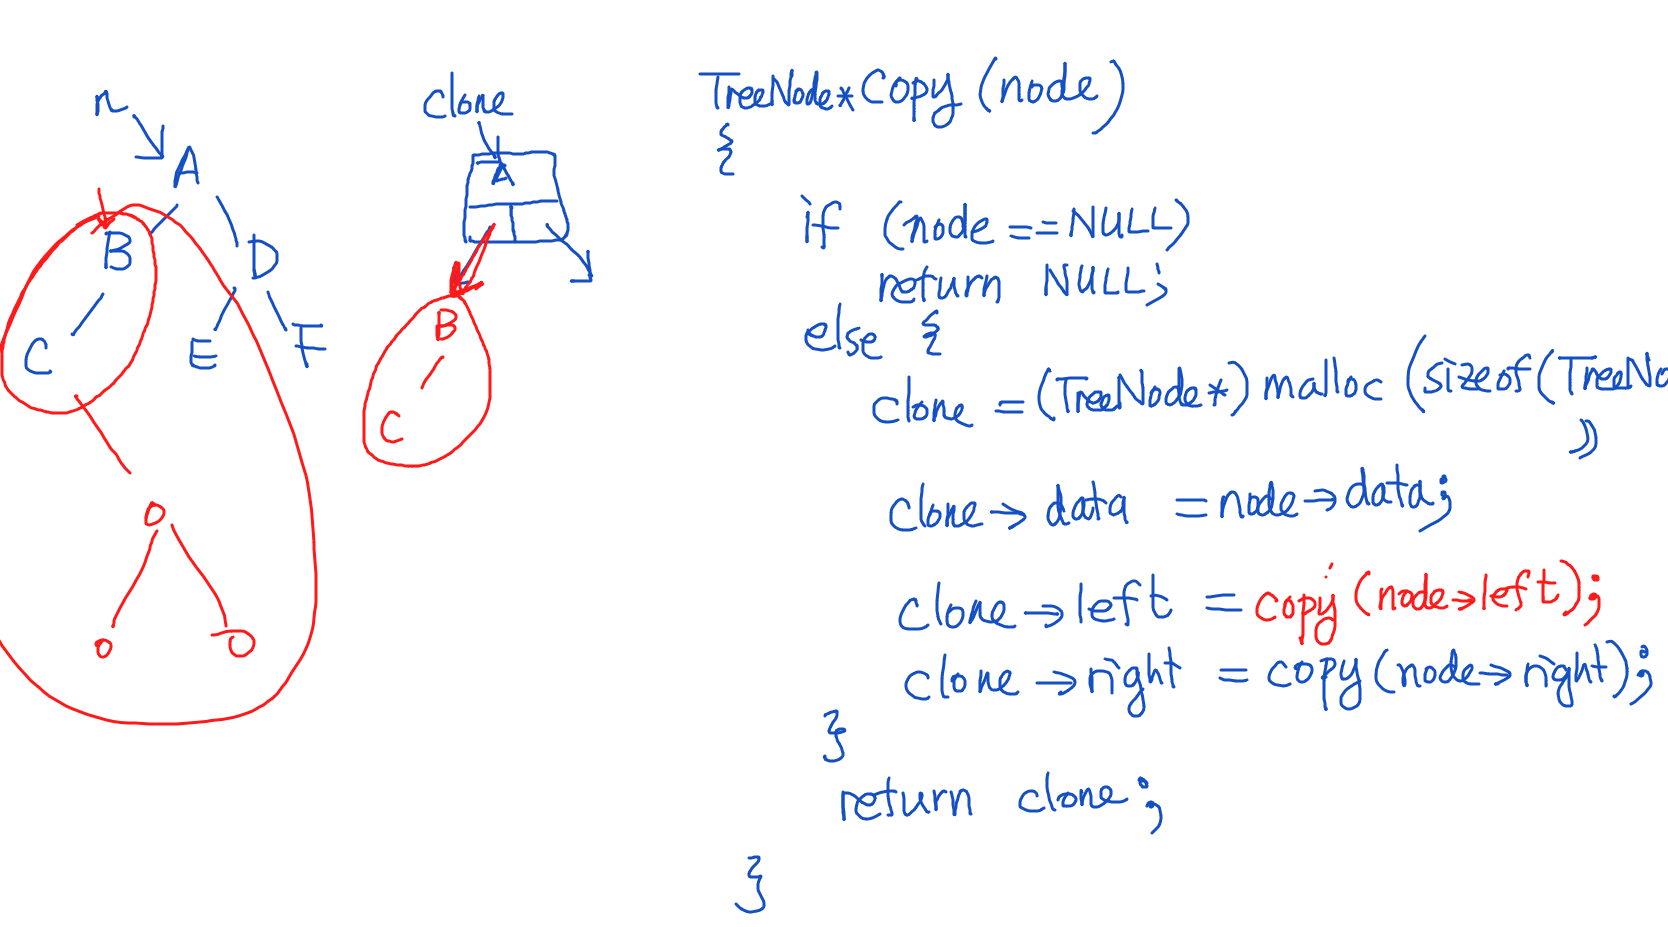 n
A
B
D
C
E
F
O
O
O
clone
A
B
C
TreeNode* Copy (node)
{
if (node == NULL)
return NULL;
else {
clone = (TreeNode*) malloc (sizeof(TreeNo
))
clone → data = node → data;
clone → left = copy (node → left);
clone → right = copy (node → right);
}
return clone;
}